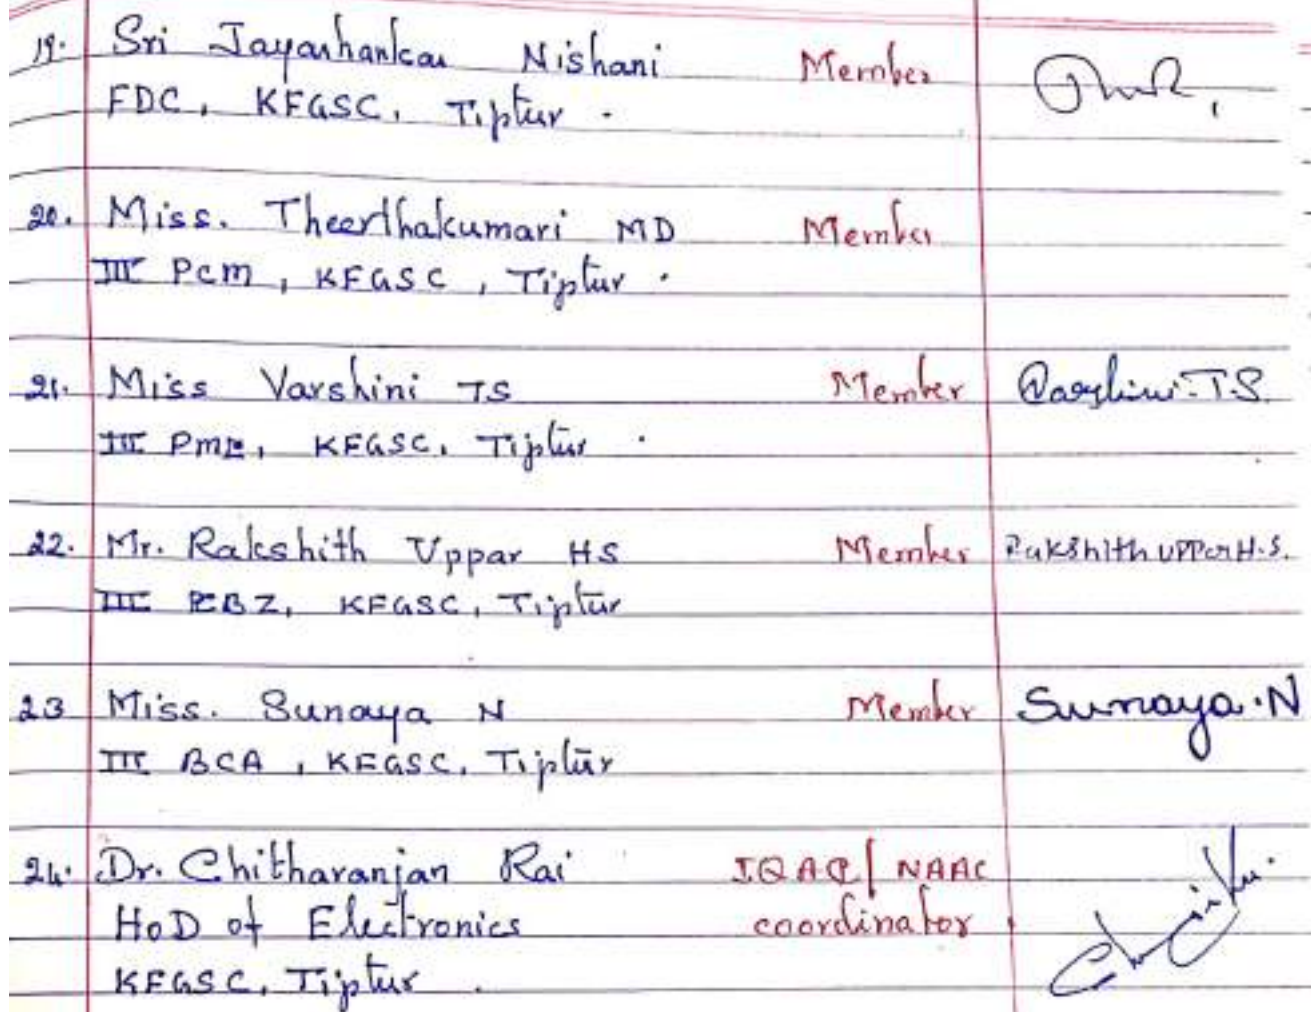 19. Sri Jayashankar Nishani Member
FDC, KFGSC, Tiptur.
20. Miss. Theerthakumari MD Member
III PCM, KFGSC, Tiptur.
21. Miss Varshini TS Member Varshini.T.S.
III PME, KFGSC, Tiptur.
22. Mr. Rakshith Uppar HS Member Rakshith UPPar H.S.
III CBZ, KFGSC, Tiptur
23 Miss. Sunaya N Member Sunaya.N
III BCA, KFGSC, Tiptur
24. Dr. Chitharanjan Rai IQAC/ NAAC
HoD of Electronics coordinator
KFGSC, Tiptur.